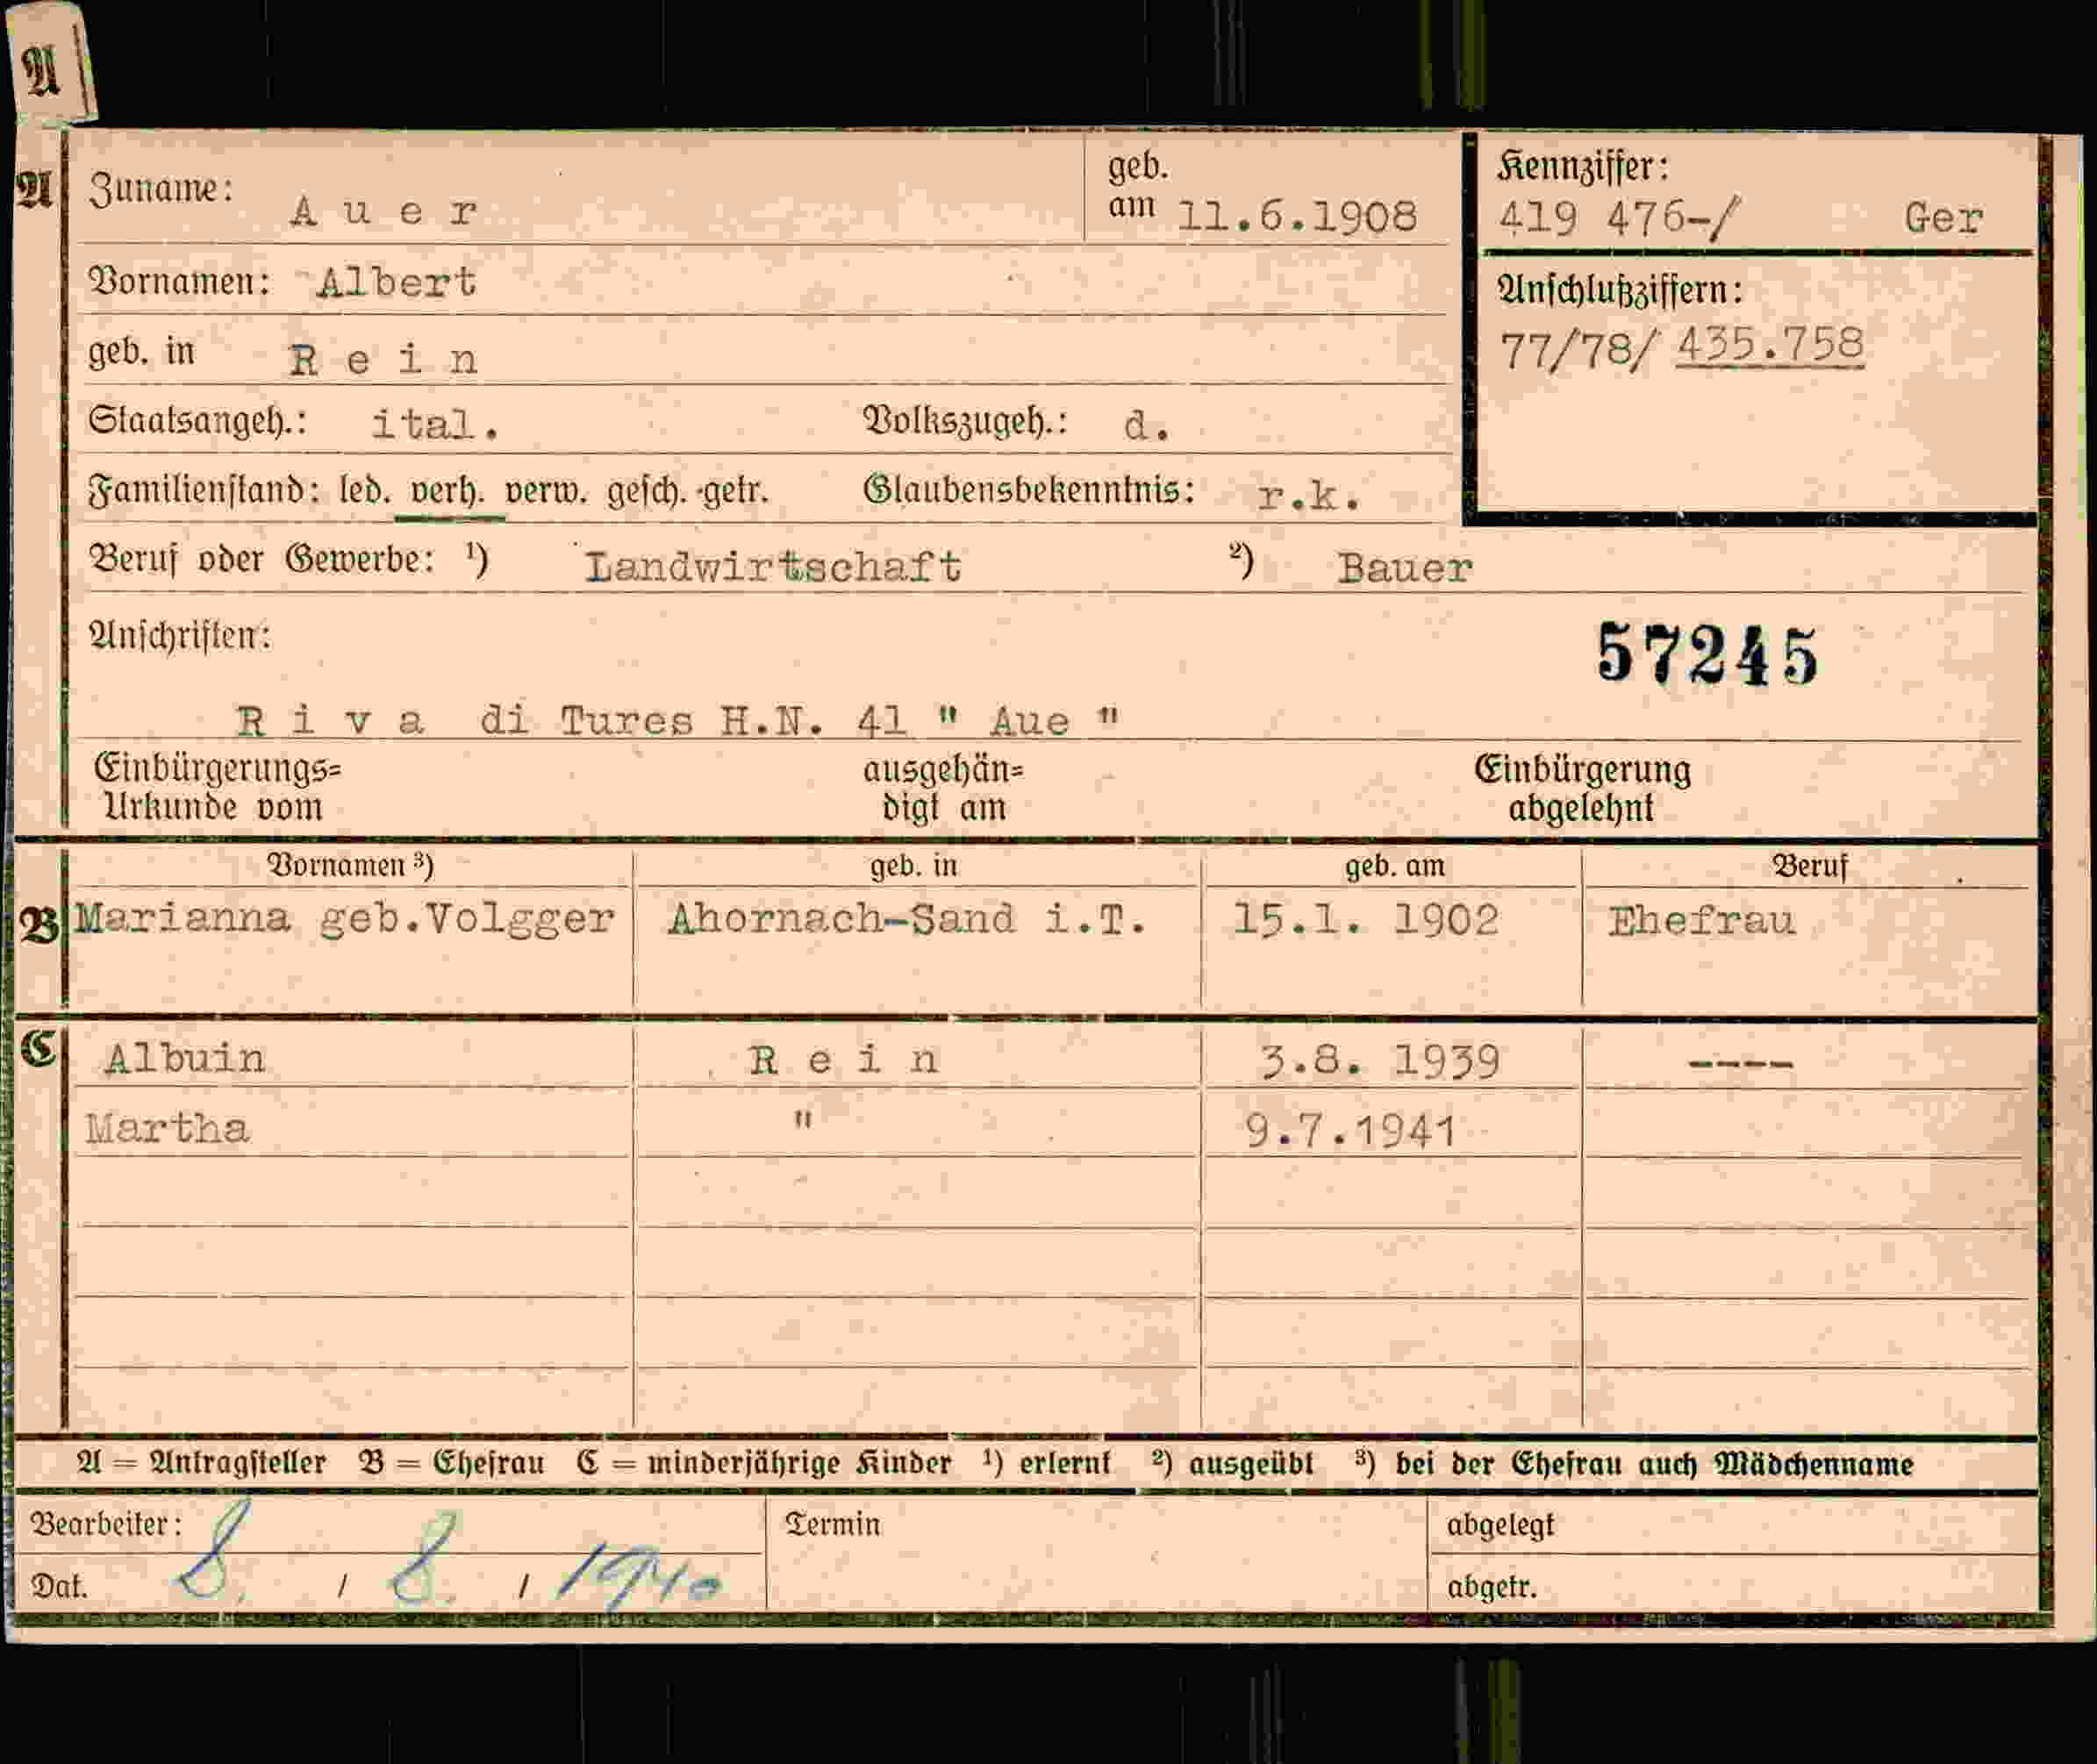 A
A Zuname: A u e r geb. am 11.6.1908 Kennziffer: 419 476-/ Ger
Vornamen: Albert Anschlußziffern:
geb. in R e i n 77/78/ 435.758
Staatsangeh.: ital. Volkszugeh.: d.
Familienstand: led. verh. verw. gesch. getr. Glaubensbekenntnis: r.k.
Beruf oder Gewerbe: ¹) Landwirtschaft ²) Bauer
Anschriften: 57245
R i v a di Tures H.N. 41 " Aue "
Einbürgerungs= ausgehän= Einbürgerung
Urkunde vom digt am abgelehnt
Vornamen ³) geb. in geb. am Beruf
B Marianna geb.Volgger Ahornach-Sand i.T. 15.1. 1902 Ehefrau
C Albuin R e i n 3.8. 1939 ----
Martha " 9.7.1941
A = Antragsteller B = Ehefrau C = minderjährige Kinder ¹) erlernt ²) ausgeübt ³) bei der Ehefrau auch Mädchenname
Bearbeiter: Termin abgelegt
Dat. 8. / 8. / 1940 abgetr.